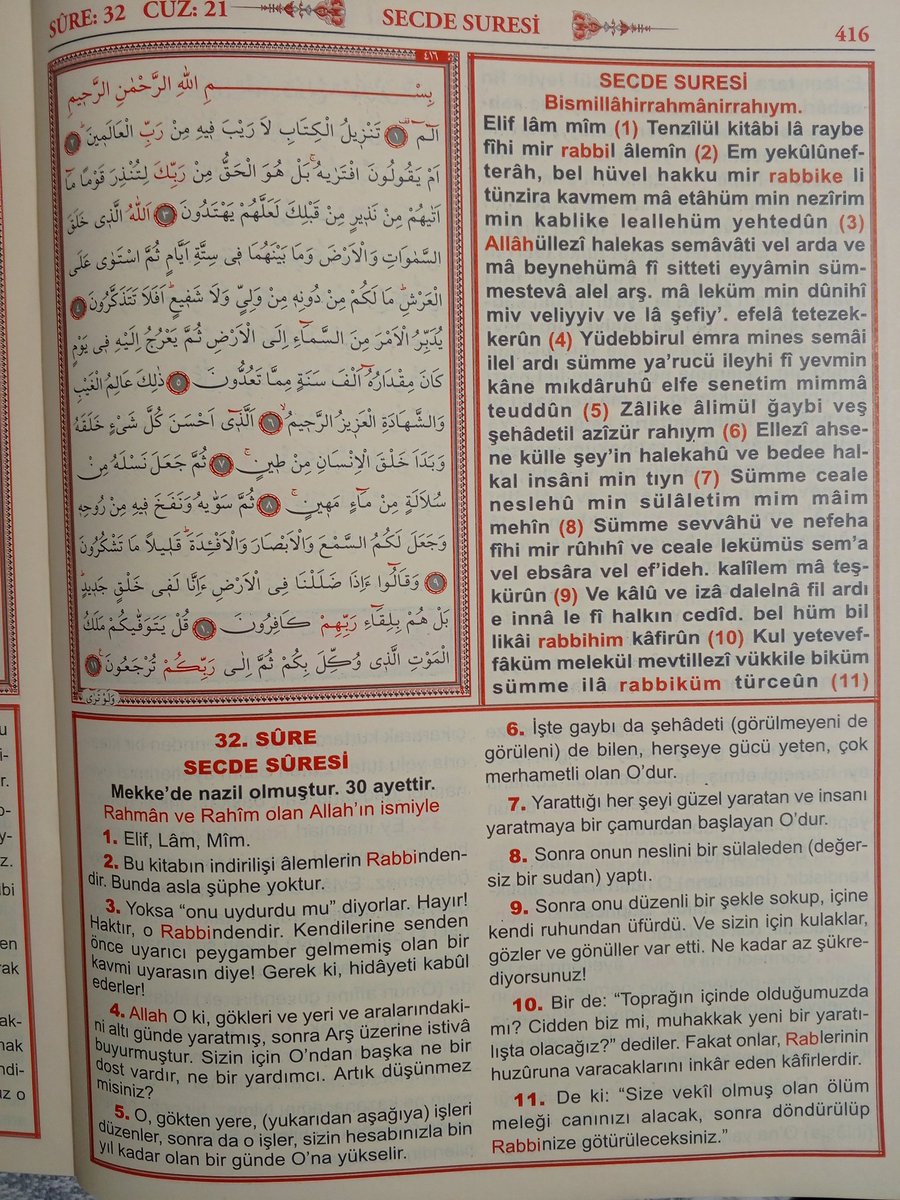 SÛRE: 32 CUZ: 21
SECDE SURESİ
416
٤١٦
بِسْمِ اللهِ الرَّحْمٰنِ الرَّحِيمِ
الٓمٓ ۚ ﴿١﴾ تَنْزِيلُ الْكِتَابِ لَا رَيْبَ فِيهِ مِنْ رَبِّ الْعَالَمِينَ ۜ ﴿٢﴾
اَمْ يَقُولُونَ افْتَرٰيهُ ۚ بَلْ هُوَ الْحَقُّ مِنْ رَبِّكَ لِتُنْذِرَ قَوْمًا مَٓا
اَتٰيهُمْ مِنْ نَذِيرٍ مِنْ قَبْلِكَ لَعَلَّهُمْ يَهْتَدُونَ ﴿٣﴾ اَللهُ الَّذِى خَلَقَ
السَّمٰوَاتِ وَالْاَرْضَ وَمَا بَيْنَهُمَا فِى سِتَّةِ اَيَّامٍ ثُمَّ اسْتَوٰى عَلَى
الْعَرْشِ ۜ مَا لَكُمْ مِنْ دُونِهِ مِنْ وَلِىٍّ وَلَا شَفِيعٍ ۜ اَفَلَا تَتَذَكَّرُونَ ﴿٤﴾
يُدَبِّرُ الْاَمْرَ مِنَ السَّمَٓاءِ اِلَى الْاَرْضِ ثُمَّ يَعْرُجُ اِلَيْهِ فِى يَوْمٍ
كَانَ مِقْدَارُهُٓ اَلْفَ سَنَةٍ مِمَّا تَعُدُّونَ ﴿٥﴾ ذٰلِكَ عَالِمُ الْغَيْبِ
وَالشَّهَادَةِ الْعَزِيزُ الرَّحِيمُ ۙ ﴿٦﴾ اَلَّذِٓى اَحْسَنَ كُلَّ شَىْءٍ خَلَقَهُ
وَبَدَاَ خَلْقَ الْاِنْسَانِ مِنْ طِينٍ ۚ ﴿٧﴾ ثُمَّ جَعَلَ نَسْلَهُ مِنْ
سُلَالَةٍ مِنْ مَٓاءٍ مَهِينٍ ۚ ﴿٨﴾ ثُمَّ سَوّٰيهُ وَنَفَخَ فِيهِ مِنْ رُوحِهِ
وَجَعَلَ لَكُمُ السَّمْعَ وَالْاَبْصَارَ وَالْاَفْـِٔدَةَ ۜ قَلِيلًا مَا تَشْكُرُونَ
﴿٩﴾ وَقَالُٓوا ءَاِذَا ضَلَلْنَا فِى الْاَرْضِ ءَاِنَّا لَفِى خَلْقٍ جَدِيدٍ ۜ
بَلْ هُمْ بِلِقَٓاءِ رَبِّهِمْ كَافِرُونَ ﴿١٠﴾ قُلْ يَتَوَفّٰيكُمْ مَلَكُ
الْمَوْتِ الَّذِى وُكِّلَ بِكُمْ ثُمَّ اِلٰى رَبِّكُمْ تُرْجَعُونَ ۟ ﴿١١﴾
وَلَوْ تَرٰٓى
SECDE SURESİ
Bismillâhirrahmânirrahıym.
Elif lâm mîm (1) Tenzîlül kitâbi lâ raybe
fîhi mir rabbil âlemîn (2) Em yekûlûnef-
terâh, bel hüvel hakku mir rabbike li
tünzira kavmem mâ etâhüm min nezîrim
min kablike leallehüm yehtedûn (3)
Allâhüllezî halekas semâvâti vel arda ve
mâ beynehümâ fî sitteti eyyâmin süm-
mestevâ alel arş. mâ leküm min dûnihî
miv veliyyiv ve lâ şefiy'. efelâ tetezek-
kerûn (4) Yüdebbirul emra mines semâi
ilel ardı sümme ya'rucü ileyhi fî yevmin
kâne mıkdâruhû elfe senetim mimmâ
teuddûn (5) Zâlike âlimül ğaybi veş
şehâdetil azîzür rahıym (6) Ellezî ahse-
ne külle şey'in halekahû ve bedee hal-
kal insâni min tıyn (7) Sümme ceale
neslehû min sülâletim mim mâim
mehîn (8) Sümme sevvâhü ve nefeha
fîhi mir rûhıhî ve ceale lekümüs sem'a
vel ebsâra vel ef'ideh. kalîlem mâ teş-
kürûn (9) Ve kâlû ve izâ dalelnâ fil ardı
e innâ le fî halkın cedîd. bel hüm bil
likâi rabbihim kâfirûn (10) Kul yetevef-
fâküm melekül mevtillezî vükkile biküm
sümme ilâ rabbiküm türceûn (11)
32. SÛRE
SECDE SÛRESİ
Mekke'de nazil olmuştur. 30 ayettir.
Rahmân ve Rahîm olan Allah'ın ismiyle
1. Elif, Lâm, Mîm.
2. Bu kitabın indirilişi âlemlerin Rabbinden-
dir. Bunda asla şüphe yoktur.
3. Yoksa "onu uydurdu mu" diyorlar. Hayır!
Haktır, o Rabbindendir. Kendilerine senden
önce uyarıcı peygamber gelmemiş olan bir
kavmi uyarasın diye! Gerek ki, hidâyeti kabûl
ederler!
4. Allah O ki, gökleri ve yeri ve aralarındaki-
ni altı günde yaratmış, sonra Arş üzerine istivâ
buyurmuştur. Sizin için O'ndan başka ne bir
dost vardır, ne bir yardımcı. Artık düşünmez
misiniz?
5. O, gökten yere, (yukarıdan aşağıya) işleri
düzenler, sonra da o işler, sizin hesabınızla bin
yıl kadar olan bir günde O'na yükselir.
6. İşte gaybı da şehâdeti (görülmeyeni de
görüleni) de bilen, herşeye gücü yeten, çok
merhametli olan O'dur.
7. Yarattığı her şeyi güzel yaratan ve insanı
yaratmaya bir çamurdan başlayan O'dur.
8. Sonra onun neslini bir sülaleden (değer-
siz bir sudan) yaptı.
9. Sonra onu düzenli bir şekle sokup, içine
kendi ruhundan üfürdü. Ve sizin için kulaklar,
gözler ve gönüller var etti. Ne kadar az şükre-
diyorsunuz!
10. Bir de: "Toprağın içinde olduğumuzda
mı? Cidden biz mi, muhakkak yeni bir yaratı-
lışta olacağız?" dediler. Fakat onlar, Rablerinin
huzûruna varacaklarını inkâr eden kâfirlerdir.
11. De ki: "Size vekîl olmuş olan ölüm
meleği canınızı alacak, sonra döndürülüp
Rabbinize götürüleceksiniz."